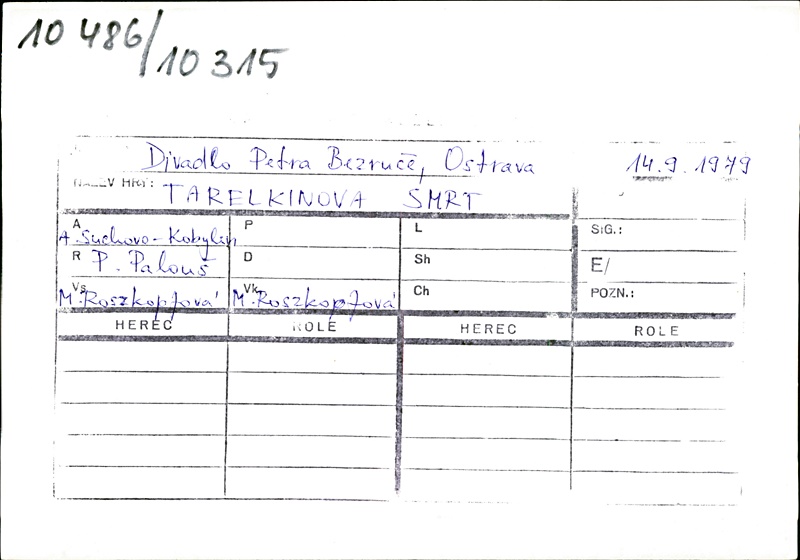 10 486/10 315
Divadlo Petra Bezruče, Ostrava 14.9.1979
NÁZEV HRY: TARELKINOVA SMRT
A A. Suchovo-Kobylin P L SIG.:
R P. Palouš D Sh E/
Vs M. Roszkopfová Vk M. Roszkopfová Ch POZN.:
HEREC ROLE HEREC ROLE